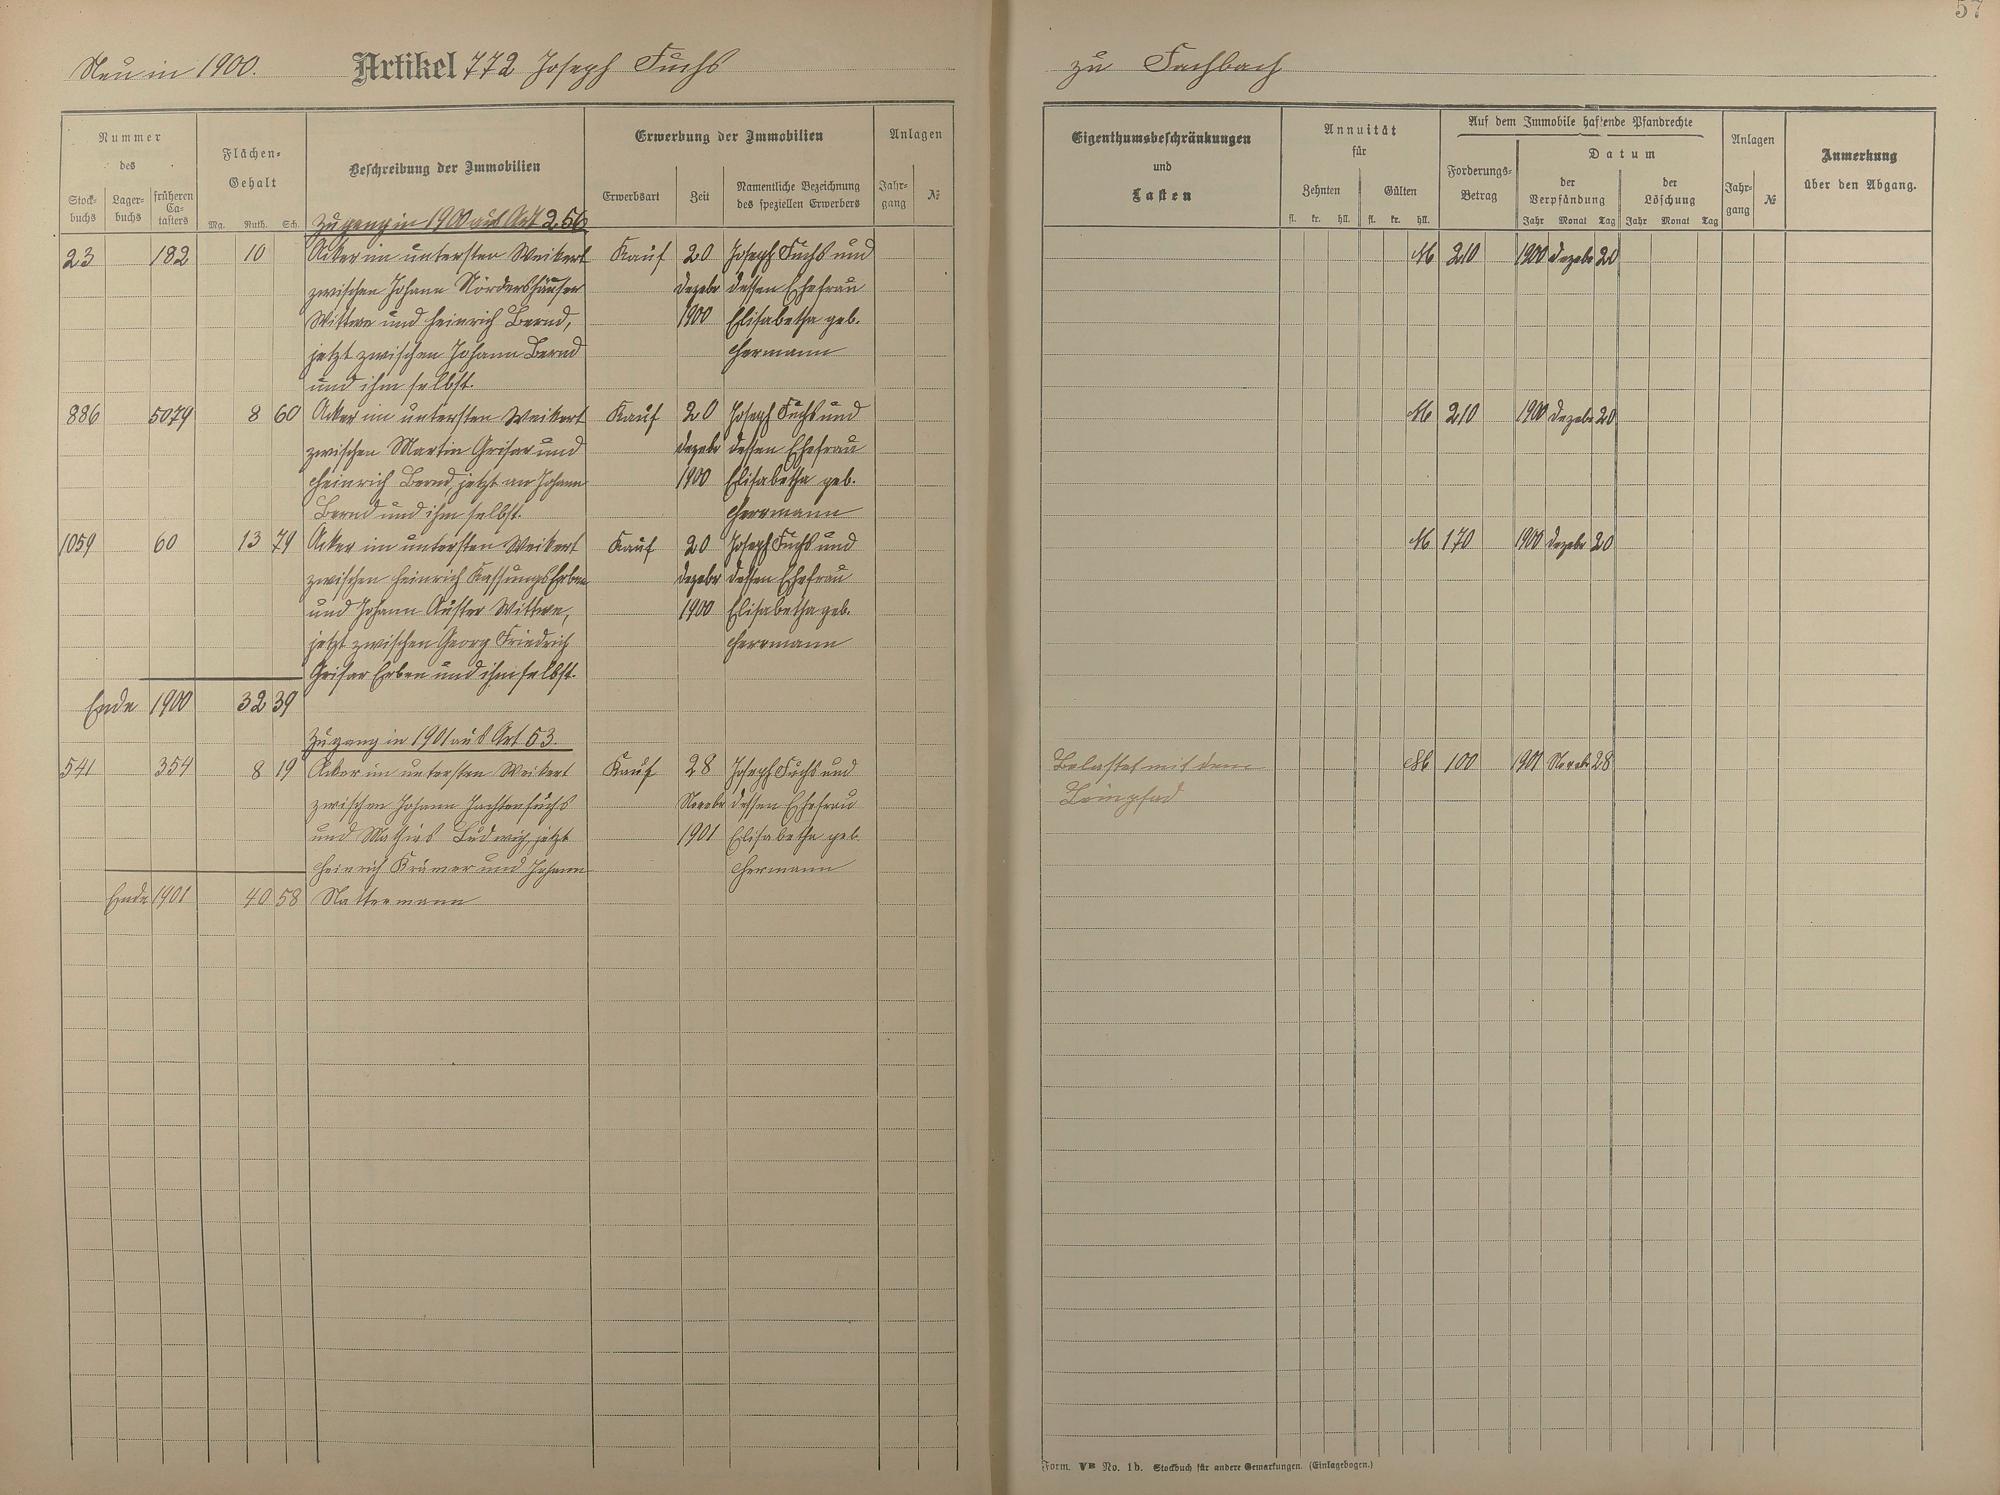 57
Neu in 1900. Artikel 772 Joseph Fuchs
zu Fachbach
Nummer des
Stock-buchs Lager-buchs früheren Ca-tasters
Flächen-Gehalt
Ma. Ruth. Sch.
Beschreibung der Immobilien
Erwerbung der Immobilien
Erwerbsart Zeit Namentliche Bezeichnung des speziellen Erwerbers
Anlagen
Jahr-gang №
Eigenthumsbeschränkungen und Lasten
Annuität für
Zehnten Gülten
fl. kr. hll. fl. kr. hll.
Auf dem Immobile haftende Pfandrechte
Forderungs-Betrag
Datum
der Verpfändung der Löschung
Jahr Monat Tag Jahr Monat Tag
Anlagen
Jahr-gang №
Anmerkung über den Abgang.
Zugang in 1900 aus Art 256
23 182 10 Acker im untersten Weikert Kauf 20 Joseph Fuchs und M 210 1900 Dezebr 20
zwischen Johann Nördershäuser Dezebr dessen Ehefrau
Wittwe und Heinrich Bernd, 1900 Elisabetha geb.
jetzt zwischen Johann Bernd Hermann
und ihm selbst.
886 5079 8 60 Acker im untersten Weikert Kauf 20 Joseph Fuchs und M 210 1900 Dezebr 20
zwischen Martin Grisar und Dezebr dessen Ehefrau
Heinrich Bernd, jetzt an Johann 1900 Elisabetha geb.
Bernd und ihm selbst. Herrmann
1059 60 13 79 Acker im untersten Weikert Kauf 20 Joseph Fuchs und M 170 1900 Dezebr 20
zwischen Heinrich Kassungs Erben Dezebr dessen Ehefrau
und Johann Auster Wittwe, 1900 Elisabetha geb.
jetzt zwischen Georg Friedrich Herrmann
Grisar Erben und ihm selbst.
Ende 1900 32 39
Zugang in 1901 aus Art 53.
541 354 8 19 Acker im untersten Weikert Kauf 28 Joseph Fuchs und Belastet mit dem M 100 1901 Novebr 28
zwischen Johann Jachtenfuchs Novebr dessen Ehefrau Leinpfad
und Mathias Ludwig, jetzt 1901 Elisabetha geb.
Heinrich Krämer und Johann Hermann
Ende 1901 40 58 Nattermann
Form. VB No. 1b. Stockbuch für andere Gemarkungen. (Einlagebogen.)